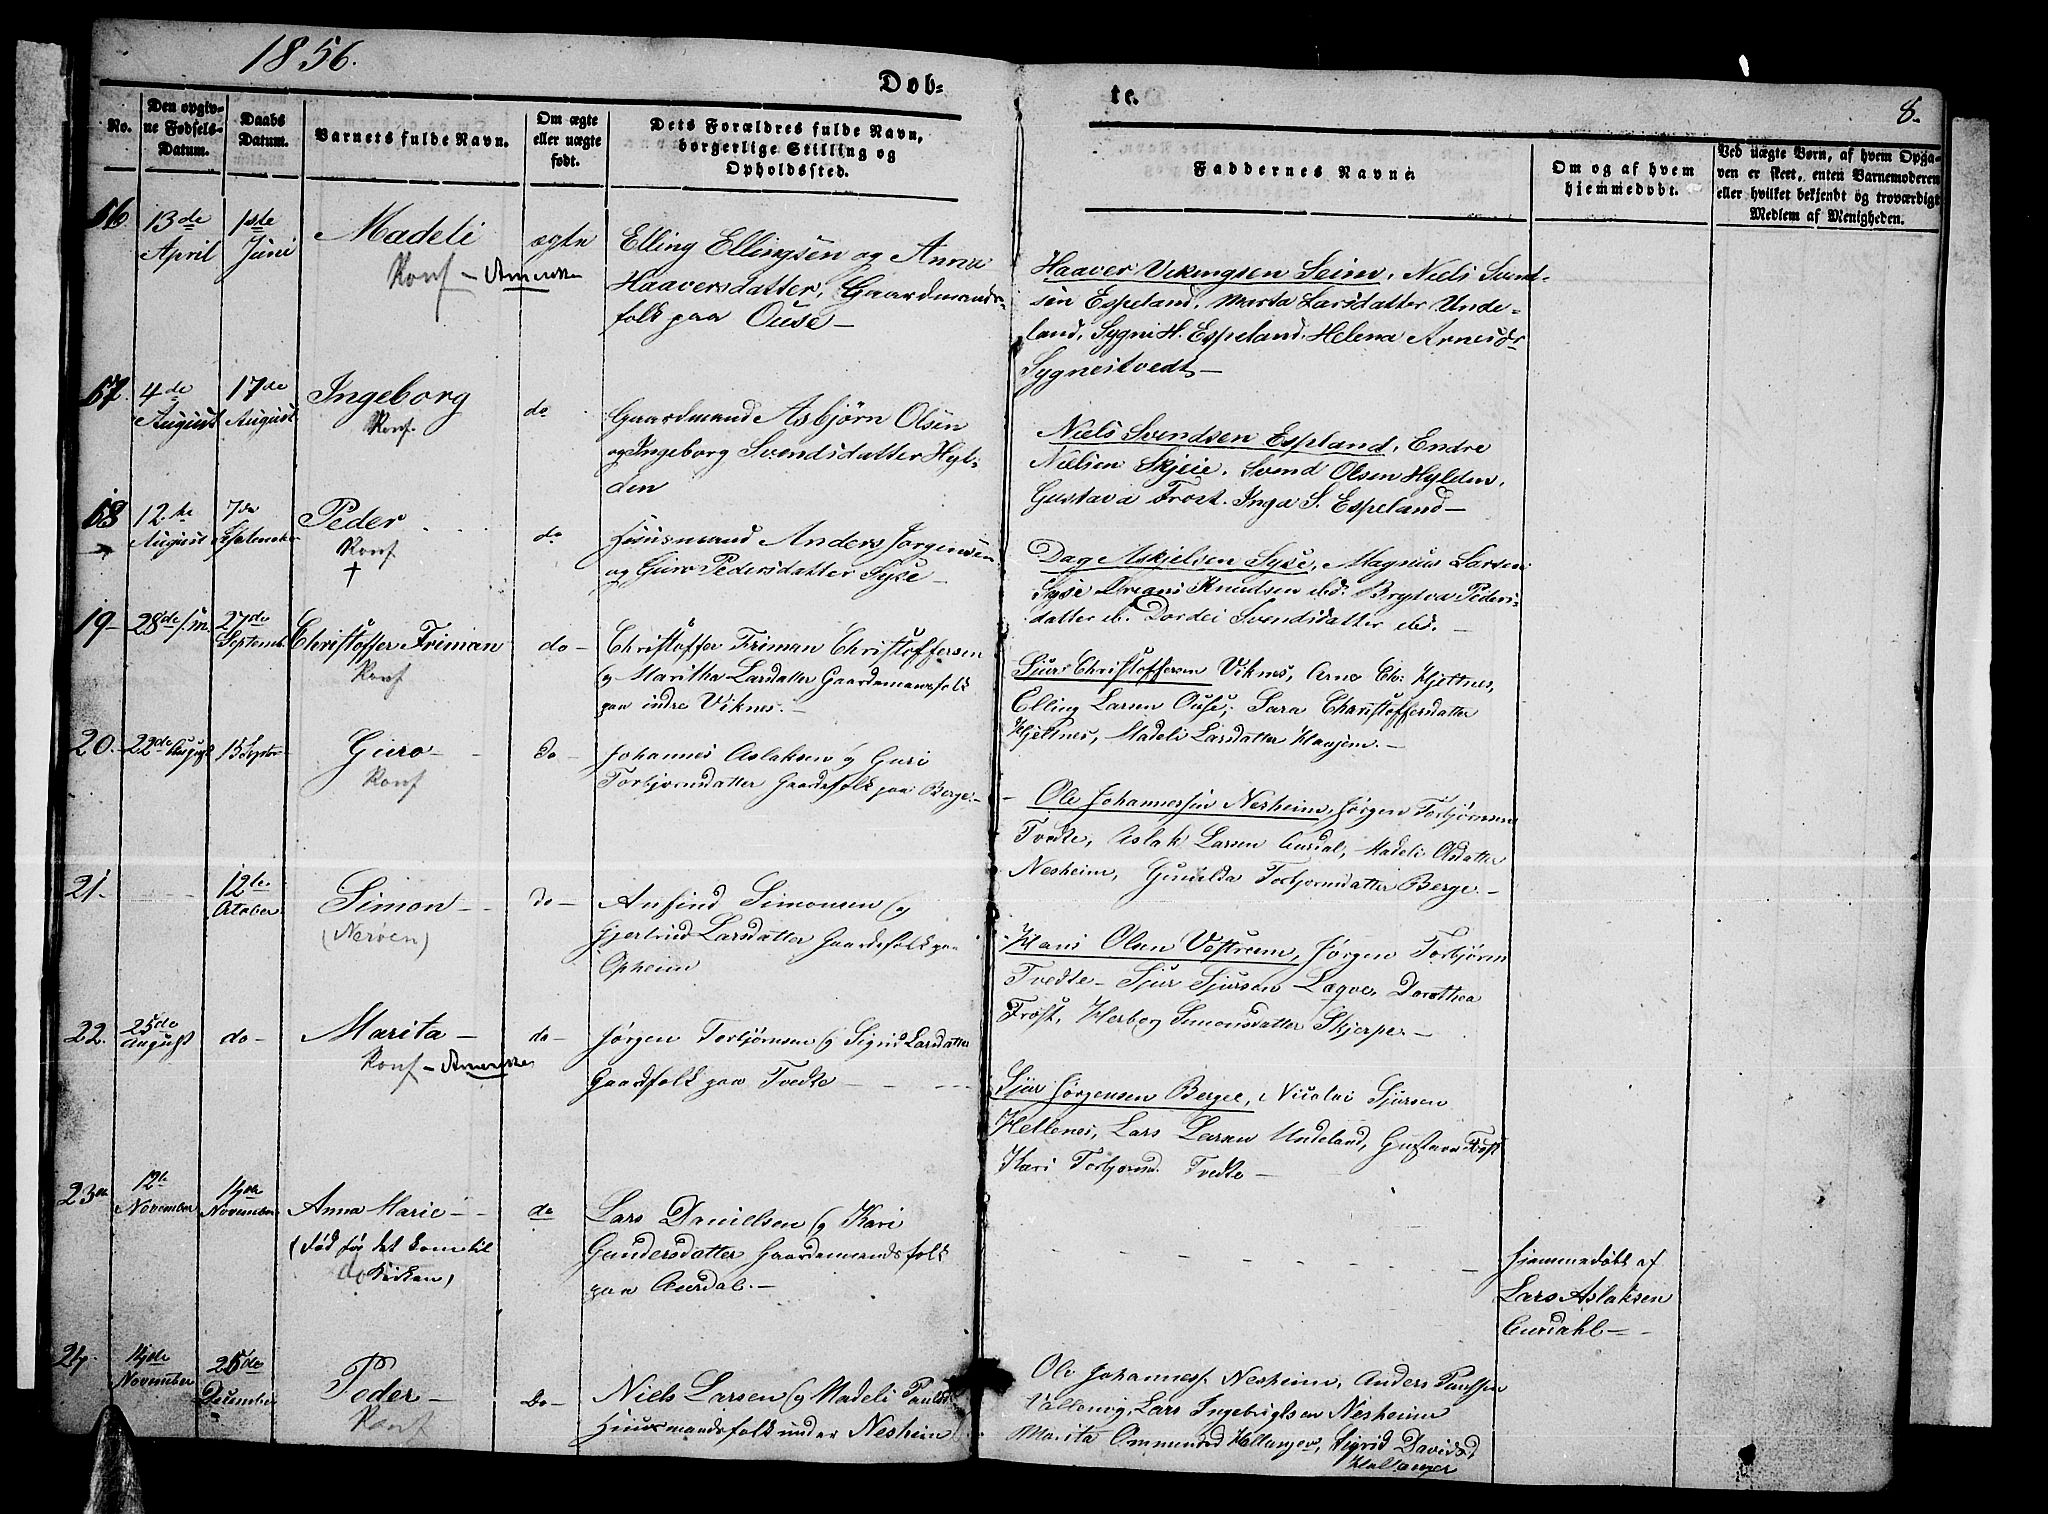 1856.
Døb-
te.
8.
No.
Den opgiv-
ne Fødsels-
Datum.
Daabs
Datum.
Barnets fulde Navn.
Om ægte
eller uægte
født.
Dets Forældres fulde Navn,
borgerlige Stilling og
Opholdssted.
Faddernes Navne
Om og af hvem
hjemmedøbt.
Ved uægte Børn, af hvem Opga-
ven er skeet, enten Barnemoderen
eller hvilket bekjendt og troværdigt
Medlem af Menigheden.
16
13de
April
1ste
Juni
Madeli
Konf - Amerika
ægte
Elling Ellingsen og Anna
Haaversdatter, Gaardmands-
folk paa Ouse -
Haaver Vikingsen Seim, Niels Svend-
sen Espeland, Marta Larsdatter Unde-
land, Sygni H. Espeland, Helena Arnesdr
Sygnestvedt -
17.
4de
August
17de
August
Ingeborg
Konf.
do
Gaardmand Asbjørn Olsen
og Ingeborg Svendsdatter Hyl-
den
Niels Svendsen Espland, Endre
Nielsen Skjeie, Svend Olsen Hylden,
Gustava Frost. Inga S. Espeland -
18
12te
August
7de
September
Peder
Konf
†
do
Huusmand Anders Jørgensen
og Guro Pedersdatter Syse -
Dag Askjelsen Syse, Magnus Larsen
Syse Knudsen ibd. Brytva Peders-
datter ib. Dordei Svendsdatter ibd. -
19-
28de f.m.
27de
Septemb.
Christoffer Friman
Konf
do -
Christoffer Friman Christoffersen
og Maritha Larsdatter Gaardemansfolk
paa indre Viknes. -
Sjur Christoffersen Viknes, Arne Ch: Hjeltnes,
Elling Larsen Ouse, Sara Christoffersdatter
Hjeltnes, Madeli Larsdatter Haajem. -
20.
22de August
15 Septbr
Guro -
Konf
do -
Johannes Aslaksen og Guri
Torbjornsdatter Gaardefolk paa Berge. -
- Ole Johannessen Nesheim, Jørgen Torbjørnsen
Tvedte, Aslak Larsen Aurdal, Madeli Olsdatter
Nesheim, Gunilda Torbjornsdatter Berge. -
21.
12te
October
Simon -
(Nerøen)
do -
Anfind Simonsen og
Gjertrud Larsdatter Gaardefolk paa
Opheim
Hans Olsen Vestrem, Jørgen Torbjørn
Tvedte - Sjur Sjursen Lægve, Dorothea
Frost, Herborg Simonsdatter Skjerpe -
22.
25de
August
do -
Marita -
Konf - Amerika
do -
Jørgen Torbjørnsen og Sigrid Larsdatter
Gaardfolk paa Tvedte -
Sjur Jørgensen Berge, Nicolai Sjursen
Hellenes, Lars Larsen Undeland, Gustava Frost
Kari Torbjornsd. Tvedte -
23de
12te
November
14de
November
Anna Marie -
(død før det kom til
Kirken)
do
Lars Danielsen og Kari
Gundersdatter Gaardemandsfolk
paa Aurdal. -
hjemmedøbt af
Lars Aslaksen
Aurdahl -
24.
14de
November
25de
December
Peder -
Konf
Do -
Niels Larsen og Madeli Paulsd
Huusmandsfolk under Nesheim
Ole Johanness. Nesheim, Anders
Lars Ingebrigtsen Nesheim
Marita Ommundsd Hallanger, Sigrid Davidsd.
Hallanger